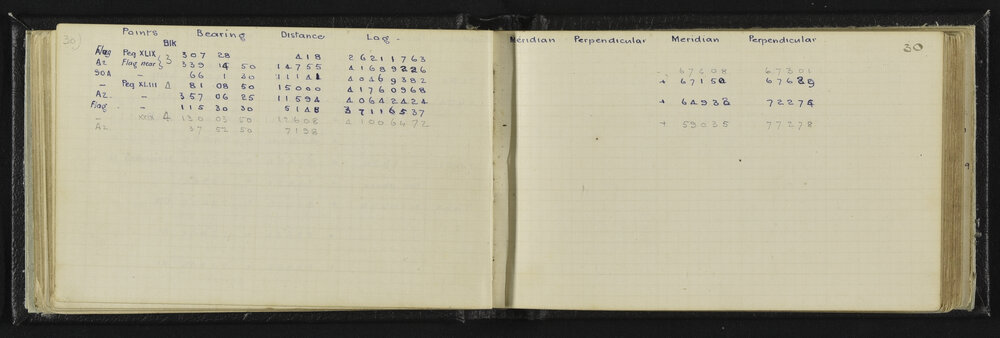 30)
Points Bearing Distance Log - Meridian Perpendicular Meridian Perpendicular 30
Blk
Flag Peg XLIX } 3 307 28 418 2 6211763
Az Flag near } 339 14 50 14755 4 1689226
SOA — 66 1 30 11141 4 0469382 + 67208 67301
— Peg XLIII 4 81 08 50 15000 4 1760968 + 67150 67689
Az. — 357 06 25 11594 4 0642424
Flag — 115 30 30 5148 3 7116537 + 64938 72274
— XXIX 4 130 03 50 12608 4 1006472
Az — 37 52 50 7198 + 59035 77278